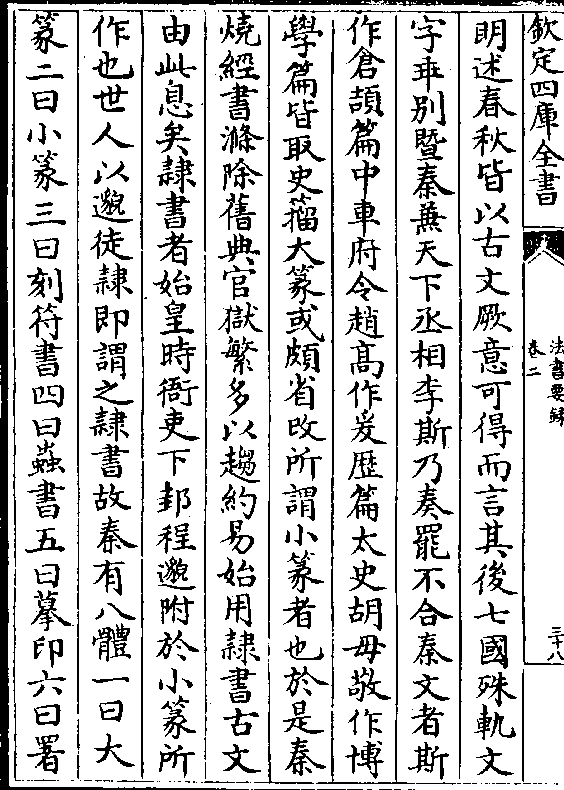 欽定四庫全書
法書要錄
卷二
三十八
明述春秋皆以古文厥意可得而言其後七國殊軌文
字乖別暨秦兼天下丞相李斯乃奏罷不合秦文者斯
作倉頡篇中車府令趙高作爰歴篇太史胡毋敬作博
學篇皆取史籀大篆或頗省改所謂小篆者也於是秦
燒經書滌除舊典官獄繁多以趨約易始用隷書古文
由此息矣隷書者始皇時衙吏下邽程邈附於小篆所
作也世人以邈徒隷即謂之隷書故秦有八體一曰大
篆二曰小篆三曰刻符書四曰蟲書五曰摹印六曰署